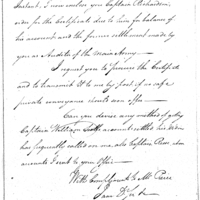 Instant. I now enclose you Captain Richardson's
order for the Certificate due to him for balance of
his account and the former settlement made by
you as Auditor of the Main Army.
I request you to procure the Certificate
and to transmit it to me by post if no safe
private conveyance should soon offer.
Can you devise any method of getting
Captain William accounts settled his Widow
has frequently called on me, also Captain whose
accounts I sent to your Office.
With Compliments to Mr. Pierce
I am Dr Sir